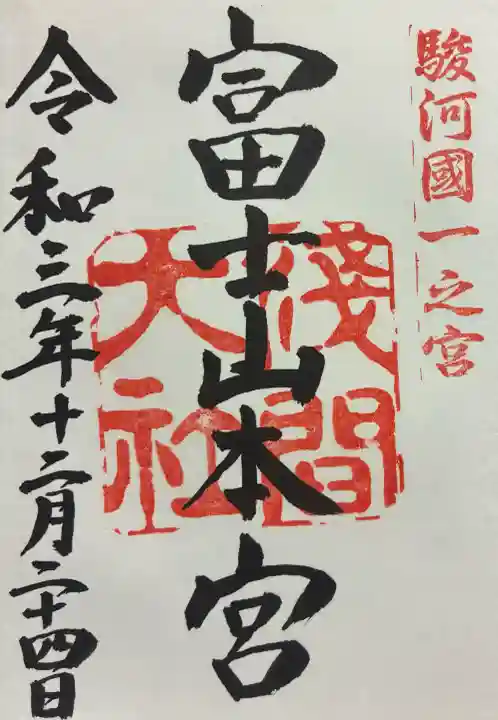 駿河國一之宮
富士山本宮
淺間
大社
令和三年十二月二十四日